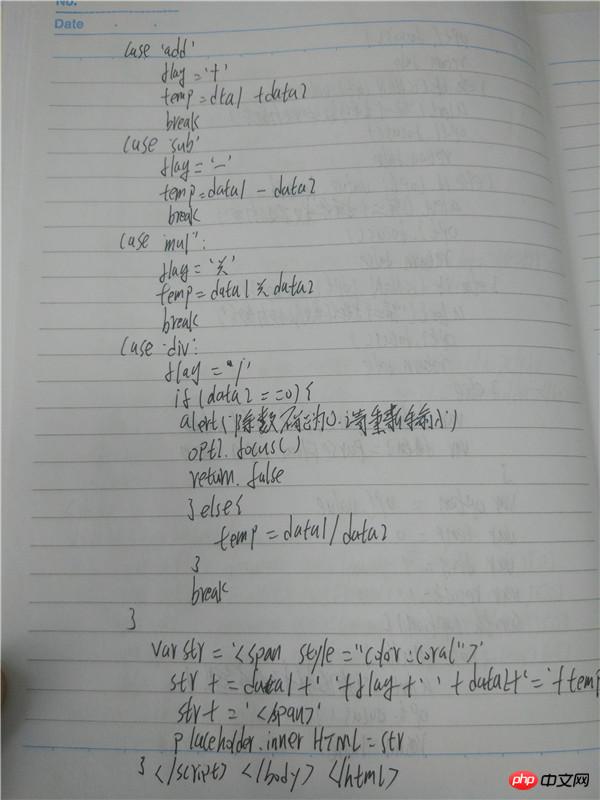 No.
Date
case 'add'
flag = '+'
temp = dtal + data2
break
case 'sub'
flag = '-'
temp = data1 - data2
break
case 'mul":
flag = '*'
temp = data1 * data2
break
case 'div':
flag = "/'
if (data2 == 0) {
alert('除数不能为0,请重新输入')
opt1.focus()
return.false
} else {
temp = data1 / data2
}
break
}
var str = '<span style="color:coral">'
str += data1 + ' ' + flag + ' ' + data2 + '=' + temp
str += '<span>'
placeholder.innerHTML = str
} </script> </body> </html>
php 中文网